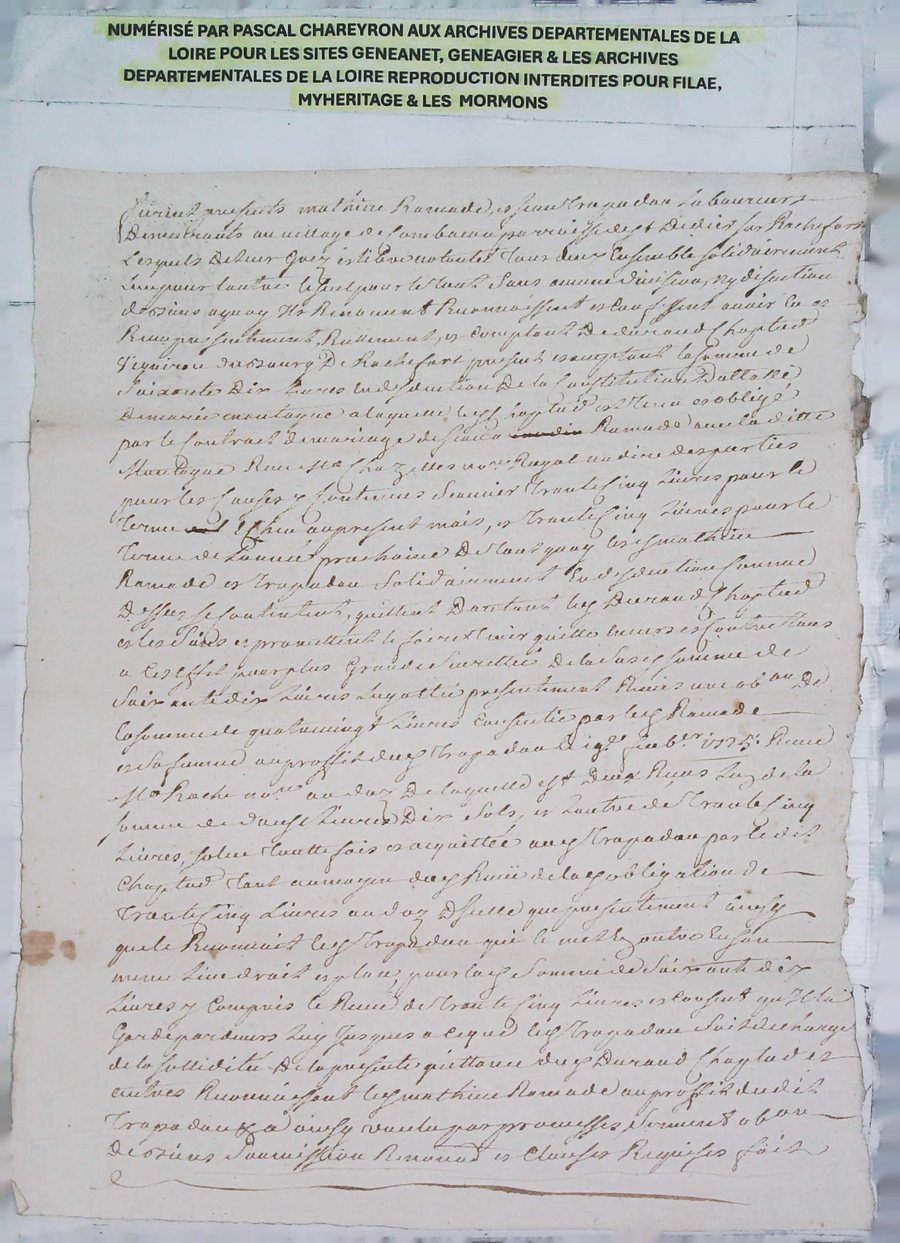 NUMÉRISÉ PAR PASCAL CHAREYRON AUX ARCHIVES DEPARTEMENTALES DE LA
LOIRE POUR LES SITES GENEANET, GENEAGIER & LES ARCHIVES
DEPARTEMENTALES DE LA LOIRE REPRODUCTION INTERDITES POUR FILAE,
MYHERITAGE & LES MORMONS
furent presents mathieu Ramade, et Jean Trapadou Laboureurs
Demeurants au village de parroisse de st Didier sur Rochefort
Lesquels de leur grez et libre volonté tous deux Ensemble solidairement
Lun pour lautre le seul pour le tout sans aucune division, ny discution
Renoncent Reconnoissent et Confessent avoir eu et
Receu presentement, Reellement, et comptant De durand Chaptud
Vigneron du bourg De Rochefort present et acceptant la somme de
Soixante Dix livres En deduction De la Constitution Dottalle
De marie montagne a laquelle led Chaptud est tenu et obligé
par le Contract de mariage de Ramade avec la ditte
Montagne Receu Me Chazelles nore Royal au dire des parties
pour les Causes y Contenues Scavoir Trente Cinq Livres pour le
Terme Echeu au present mois, et Trente Cinq Livres pour le
Terme de Lannée prochaine De tout quoy lesd mathieu
Ramade et Trapadou solidairement En deduction Comme
Dessus se Contentent, quittent led Durand Chaptud
et les siens et promettent le faire tenir quitte envers et Contre tous
a Cet Effet pour plus Grande Seurettée De la susd somme de
Soixante dix Livres presentement Remis une obon De
la somme de quatrevingt Livres Consentie par led Ramade
et sa femme au proffit dud Trapadou le 1725. Receue
Me Roche nore au doz De laquelle est Deux Receus Lun de la
somme de Douze Livres Dix Sols, et Lautre de Trente Cinq
Livres, solue toutte fois et acquittée aud Trapadou par le dit
Chaptud tant au moyen dud Receu de lad obligation de
Trente Cinq Livres au doz que presentement ainsy
que le Reconnoit led Trapadou qui le met En son
meme lieu droit et place pour lad Somme de Soixante dix
Livres y Compris le Receu de Trente Cinq Livres et consent
Garde pardevers Luy Jusques a ce que led Trapadou Soit decharge
de la sollidité De la presente quittance dud Durand Chaptud et
autres Reconnoissant led mathieu Ramade au proffit dudit
Trapadou a ainsy voulu par promesses Serment obon
de biens Soumission Renond et Clauses Requises fait